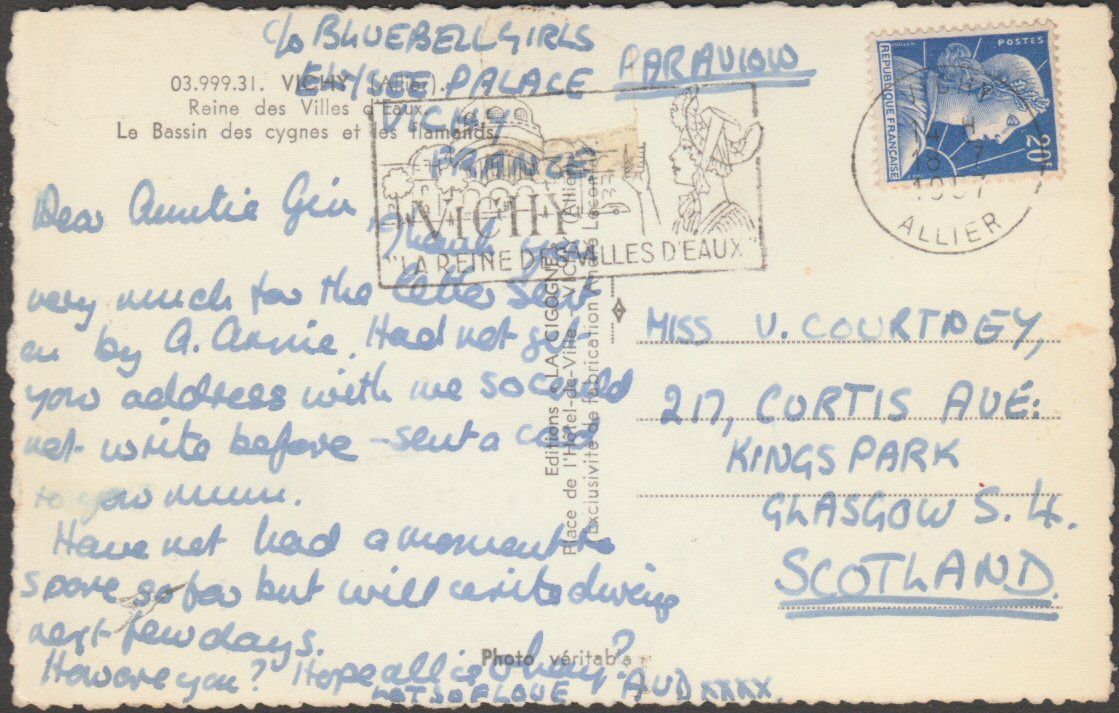 c/o BLUEBELL GIRLS
ELYSEE PALACE
VICHY
FRANCE
PAR AVION
03.999.31. VICHY (Allier).
Reine des Villes d'Eaux
Le Bassin des cygnes et les flamands
Dear Auntie Gin
Thank you
very much for the letter sent
on by A. Annie. Had not got
your address with me so could
not write before - sent a card
to your mum.
Have not had a moment to
spare so far but will write during
next few days.
How are you? Hope all is okay?
LOTS OF LOVE AUD XXXX.
VICHY
"LA REINE DES VILLES D'EAUX"
Editions "LA CIGOGNE"
Place de l'Hôtel-de-Ville - VICHY (Allier)
Exclusivité de fabrication André Leconte
Photo véritable
MULLER
POSTES
REPUBLIQUE FRANÇAISE
20F
VICHY
14 H
18 - 7
1957
ALLIER
MISS V. COURTNEY,
217, CURTIS AVE:
KINGS PARK
GLASGOW S. 4.
SCOTLAND.